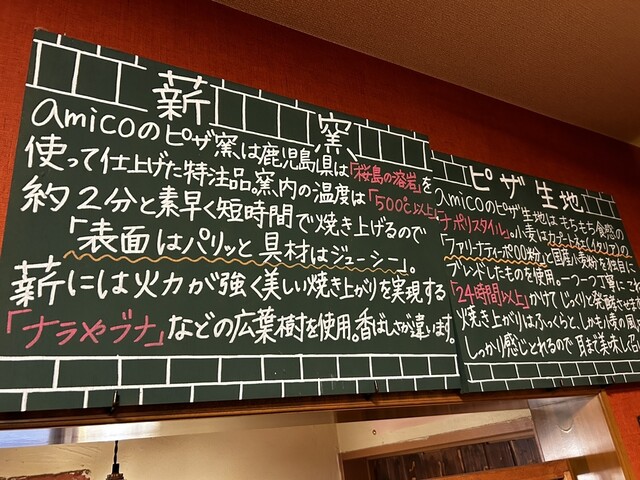 薪 窯
amicoのピザ窯は鹿児島県は「桜島の溶岩」を
使って仕上げた特注品。窯内の温度は「500℃以上」
約2分と素早く短時間で焼き上げるので
「表面はパリッと具材はジューシー」。
薪には火力が強く美しい焼き上がりを実現する
「ナラやブナ」などの広葉樹を使用。香ばしさが違います。
ピザ生地
amicoのピザ生地はもちもち食感の
「ナポリスタイル」。小麦はカプート社(イタリア)の
「ファリーナティーポ00粉」と国産小麦粉を独自に
ブレンドしたものを使用。一つ一つ丁寧にこね
「24時間以上」かけてじっくりと発酵させ
焼き上がりはふっくらと、しかも小麦の風
しっかり感じとれるので耳まで美味し